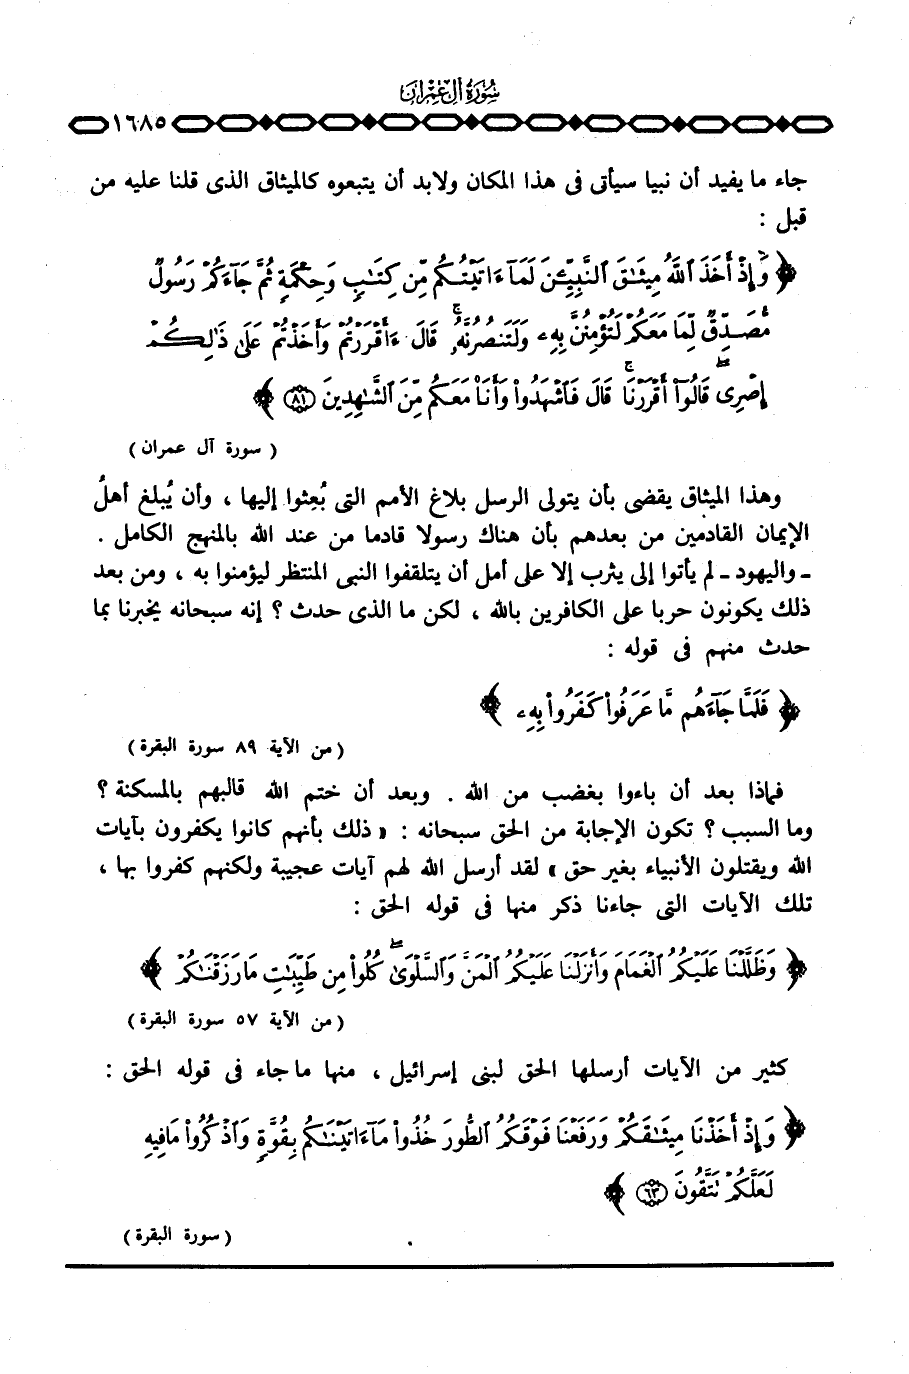 سُورَةُ آلِ عِمْرَانَ
١٦٨٥
جاء ما يفيد أن نبيا سيأتى فى هذا المكان ولابد أن يتبعوه كالميثاق الذى قلنا عليه من
قبل :
﴿ وَإِذْ أَخَذَ ٱللَّهُ مِيثَٰقَ ٱلنَّبِيِّـۧنَ لَمَآ ءَاتَيْتُكُم مِّن كِتَٰبٍ وَحِكْمَةٍ ثُمَّ جَآءَكُمْ رَسُولٌ
مُّصَدِّقٌ لِّمَا مَعَكُمْ لَتُؤْمِنُنَّ بِهِۦ وَلَتَنصُرُنَّهُۥ ۚ قَالَ ءَأَقْرَرْتُمْ وَأَخَذْتُمْ عَلَىٰ ذَٰلِكُمْ
إِصْرِى ۖ قَالُوٓا۟ أَقْرَرْنَا ۚ قَالَ فَٱشْهَدُوا۟ وَأَنَا۠ مَعَكُم مِّنَ ٱلشَّٰهِدِينَ ۝٨١ ﴾
( سورة آل عمران )
وهذا الميثاق يقضى بأن يتولى الرسل بلاغ الأمم التى بُعِثوا إليها ، وأن يُبلغ أهلُ
الإيمان القادمين من بعدهم بأن هناك رسولا قادما من عند الله بالمنهج الكامل .
ـ واليهود ـ لم يأتوا إلى يثرب إلا على أمل أن يتلقفوا النبى المنتظر ليؤمنوا به ، ومن بعد
ذلك يكونون حربا على الكافرين بالله ، لكن ما الذى حدث ؟ إنه سبحانه يخبرنا بما
حدث منهم فى قوله :
﴿ فَلَمَّا جَآءَهُم مَّا عَرَفُوا۟ كَفَرُوا۟ بِهِۦ ﴾
( من الآية ٨٩ سورة البقرة )
فماذا بعد أن باءوا بغضب من الله . وبعد أن ختم الله قالبهم بالمسكنة ؟
وما السبب ؟ تكون الإجابة من الحق سبحانه : « ذلك بأنهم كانوا يكفرون بآيات
الله ويقتلون الأنبياء بغير حق » لقد أرسل الله لهم آيات عجيبة ولكنهم كفروا بها ،
تلك الآيات التى جاءنا ذكر منها فى قوله الحق :
﴿ وَظَلَّلْنَا عَلَيْكُمُ ٱلْغَمَامَ وَأَنزَلْنَا عَلَيْكُمُ ٱلْمَنَّ وَٱلسَّلْوَىٰ ۖ كُلُوا۟ مِن طَيِّبَٰتِ مَا رَزَقْنَٰكُمْ ﴾
( من الآية ٥٧ سورة البقرة )
كثير من الآيات أرسلها الحق لبنى إسرائيل ، منها ما جاء فى قوله الحق :
﴿ وَإِذْ أَخَذْنَا مِيثَٰقَكُمْ وَرَفَعْنَا فَوْقَكُمُ ٱلطُّورَ خُذُوا۟ مَآ ءَاتَيْنَٰكُم بِقُوَّةٍ وَٱذْكُرُوا۟ مَا فِيهِ
لَعَلَّكُمْ تَتَّقُونَ ۝٦٣ ﴾
( سورة البقرة )